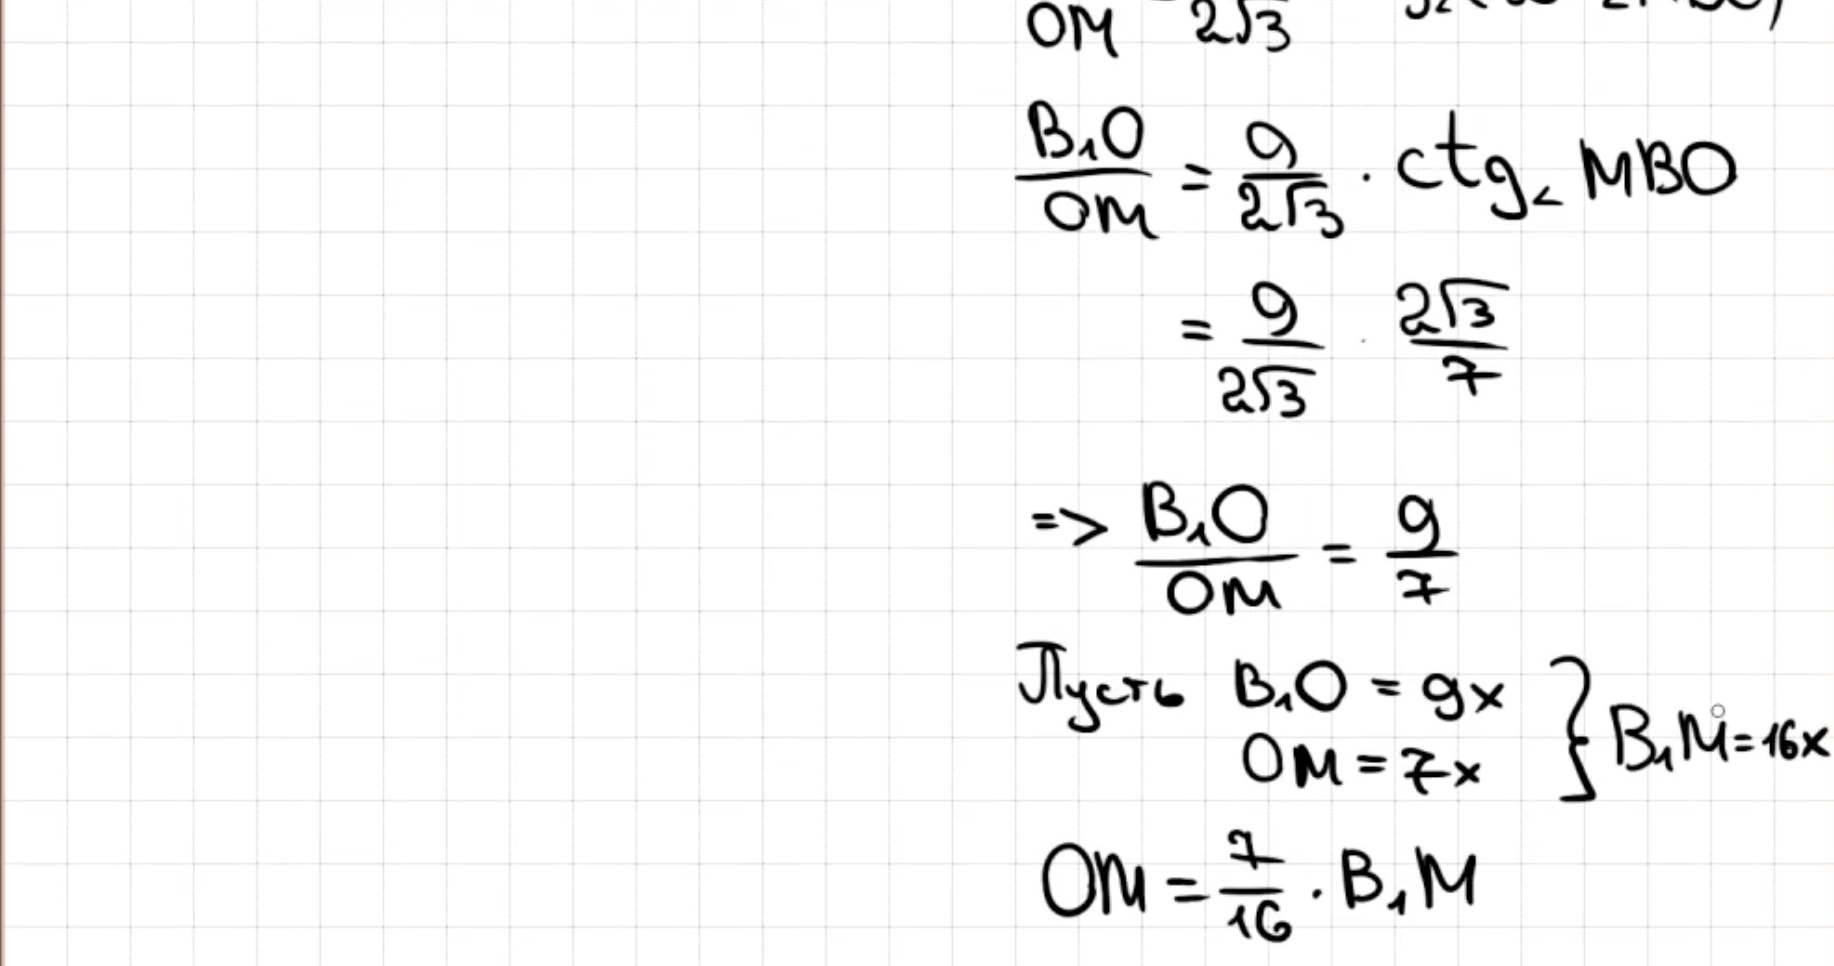 OM 2√3
B₁O/OM = 9/(2√3) · ctg∠MBO
= 9/(2√3) · 2√3/7
=> B₁O/OM = 9/7
Пусть B₁O = 9x
OM = 7x } B₁M = 16x
OM = 7/16 · B₁M